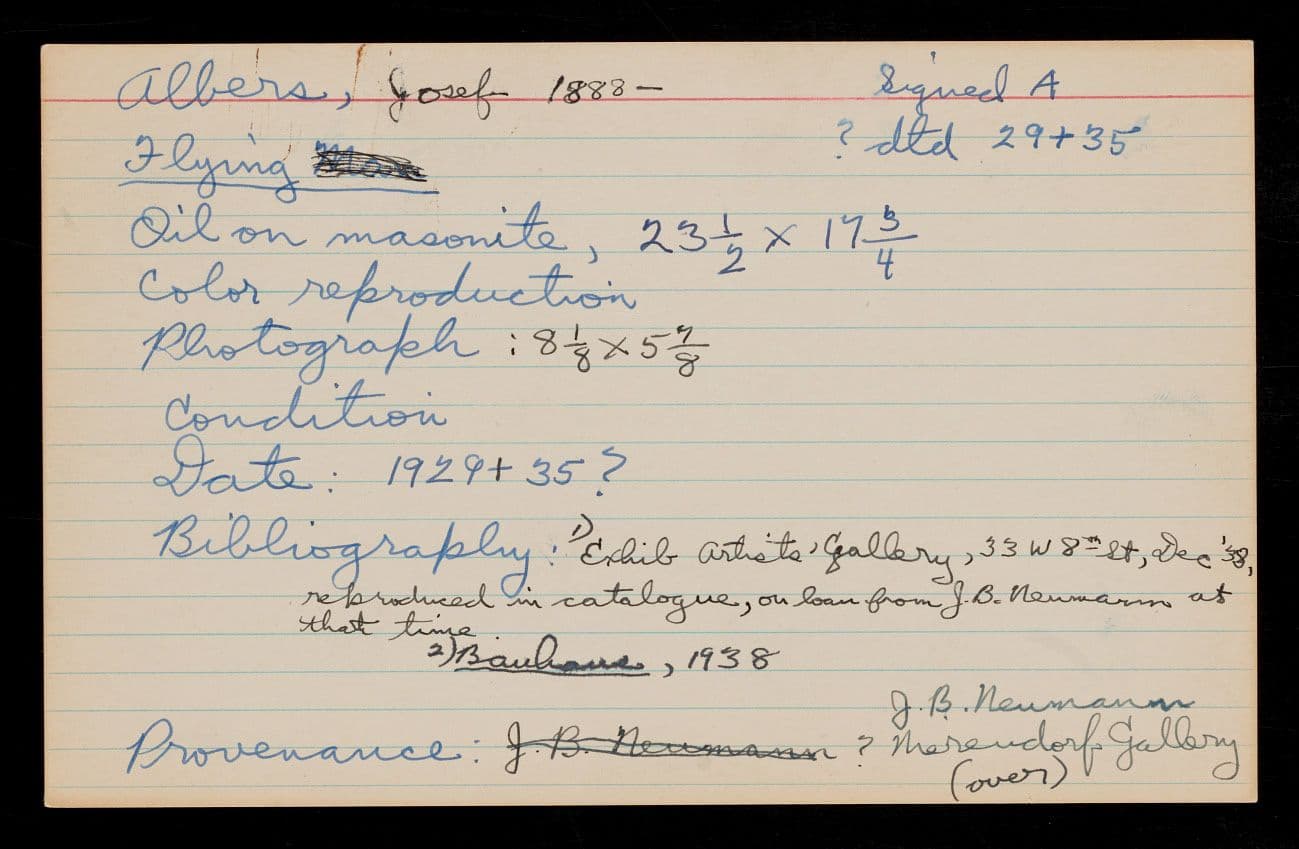 Albers, Josef 1888-
Signed A
? dtd 29+35
Flying
Oil on masonite, 23 1/2 x 17 3/4
Color reproduction
Photograph : 8 1/8 x 5 7/8
Condition
Date: 1929+35?
Bibliography: 1) Exhib Artists' Gallery, 33 W 8th St, Dec '38,
reproduced in catalogue, on loan from J.B. Neumann at
that time.
2) Bauhaus, 1938
J.B. Neumann
Provenance: J.B. Neumann ? Gallery
(over)